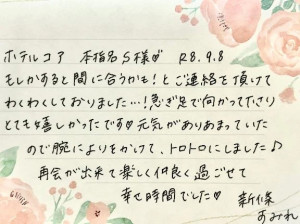 ホテルコア 本指名S様♡ R8.9.8
もしかすると間に合うかも!とご連絡を頂けて
わくわくしておりました…!急ぎ足で向かって下さり
とても嬉しかったです♡元気がありあまっていた
ので腕によりをかけて、トロトロにしました♪
再会が出来て楽しく仲良く過ごせて
幸せ時間でした♡ 新條
あみれ